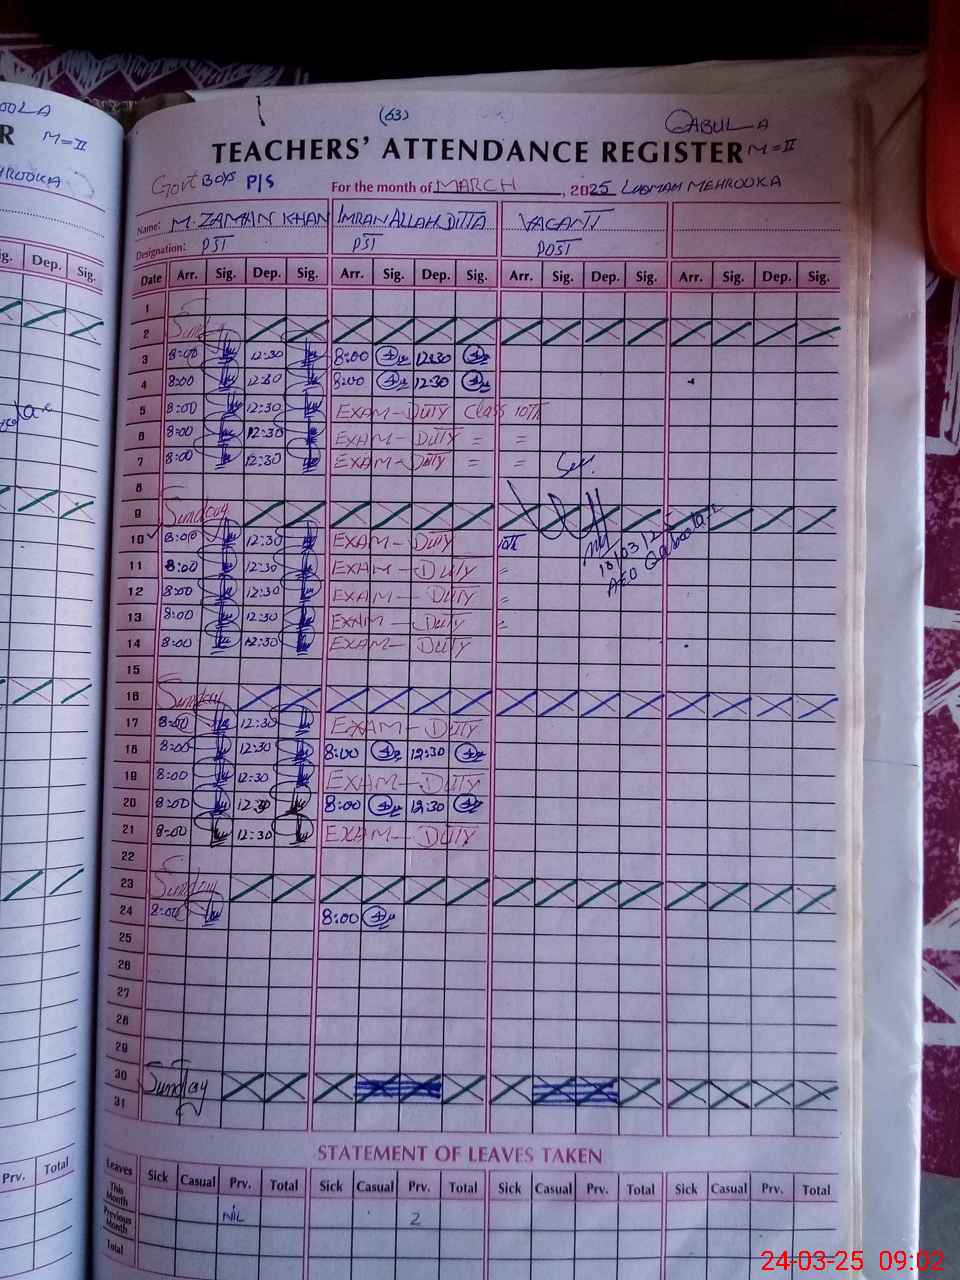 (63)
QABULA
TEACHERS' ATTENDANCE REGISTER M=II
Govt BOYS P/S For the month of MARCH, 2025 LUQMAN MEHROOKA
Name: M. ZAMAN KHAN IMRAN ALLAH DITTA VACANT
Designation: PST PST POST
Date Arr. Sig. Dep. Sig. Arr. Sig. Dep. Sig. Arr. Sig. Dep. Sig. Arr. Sig. Dep. Sig.
1
2 Sunday
3 8:00 12:30 8:00 12:30
4 8:00 12:30 8:00 12:30
5 8:00 12:30 EXAM-DUTY Class 10th
6 8:00 12:30 EXAM-DUTY = =
7 8:00 12:30 EXAM-DUTY = =
8
9 Sunday
10 8:00 12:30 EXAM-DUTY 10th
11 8:00 12:30 EXAM-DUTY =
12 8:00 12:30 EXAM-DUTY =
13 8:00 12:30 EXAM-DUTY =
14 8:00 12:30 EXAM-DUTY
15
16 Sunday
17 8:00 12:30 EXAM-DUTY
18 8:00 12:30 8:00 12:30
19 8:00 12:30 EXAM-DUTY
20 8:00 12:30 8:00 12:30
21 8:00 12:30 EXAM-DUTY
22
23 Sunday
24 8:00 8:00
25
26
27
28
29
30 Sunday
31
STATEMENT OF LEAVES TAKEN
Leaves Sick Casual Prv. Total Sick Casual Prv. Total Sick Casual Prv. Total Sick Casual Prv. Total
This Month
Previous Month NIL 2
Total
24-03-25 09:02